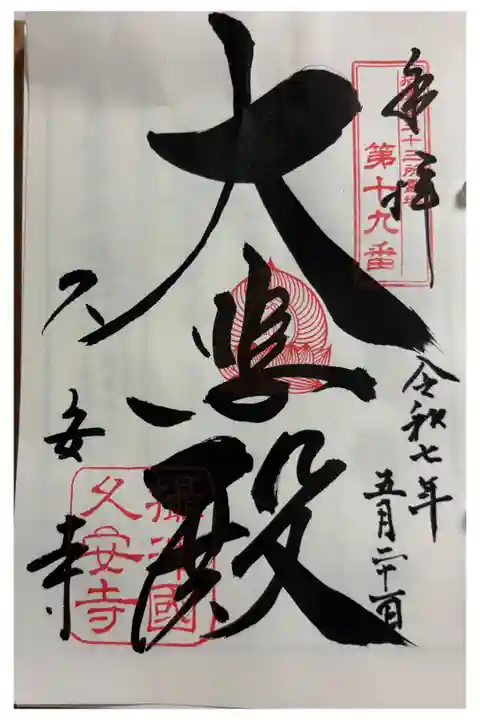 奉拝
摂津三十三所霊場
第十九番
令和七年
五月二十一日
大悲殿
久安寺
攝津國
久安寺